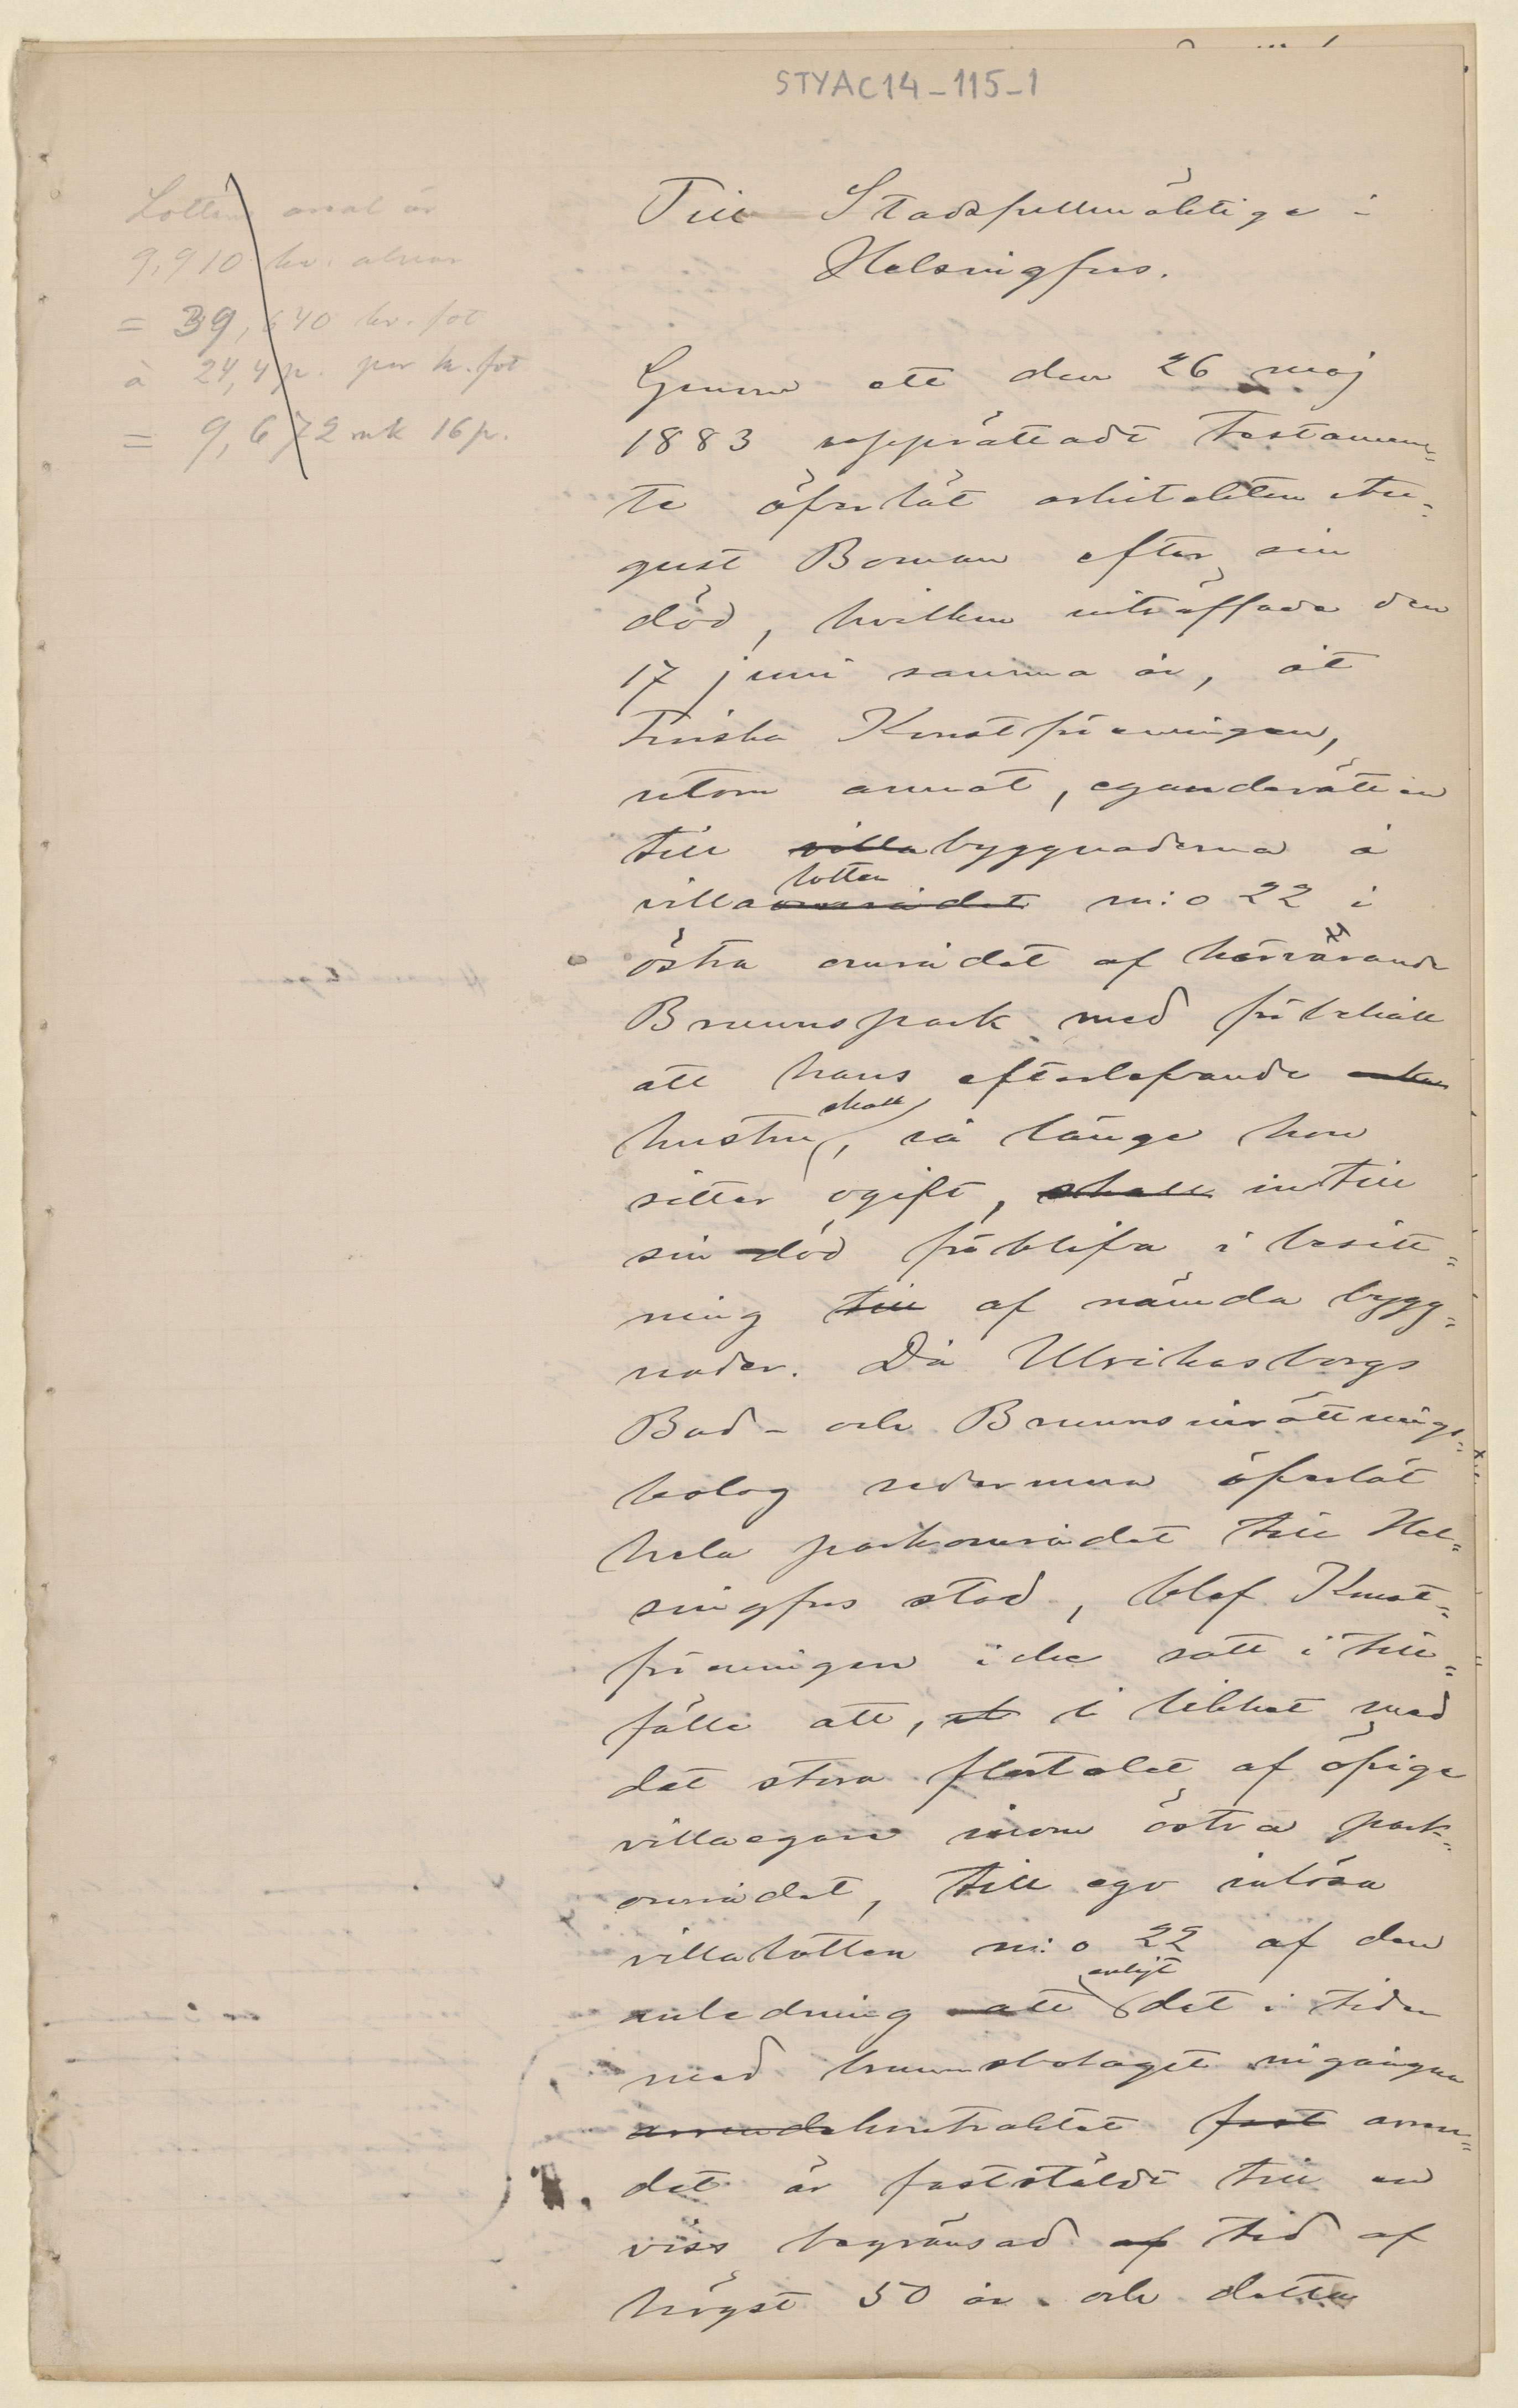 STYAC14-115-1
Lottens areal är
9,910 kv. alnar
= 39,640 kv. fot
à 24,4 p. per kv. fot
= 9,672 mk 16 p.
Till Stadsfullmäktige i
Helsingfors.
Genom ett den 26 maj
1883 upprättadt testamen=
te öfverlät arkitekten Au=
gust Boman efter sin
död, hvilken inträffade den
17 juni samma år, åt
Finska Konstföreningen,
utom annat, eganderätten
till villabyggnaderna å
lotten
villaområdet n:o 22 i
östra området af härvarande
Brunnspark med förbehåll
att hans efterlefvande enka
skall
hustru, så länge hon
sitter ogift, skall intill
sin död förblifva i besitt=
ning till af nämda bygg=
nader. Då Ulrikasborgs
Bad- och Brunnsinrättnings=
bolag sedermera öfverlät
hela parkområdet till Hel=
singfors stad, blef Konst=
föreningen icke satt i till=
fälle att, i likhet med
det stora flertalet af öfriga
villaegare inom östra park=
området, till ego inlösa
villalotten n:o 22 af den
enligt
anledning att det i tiden
med brunnsbolaget ingångna
arrendekontraktet fast arren=
det är faststäldt till en
viss begränsad af tid af
högst 50 år och detta